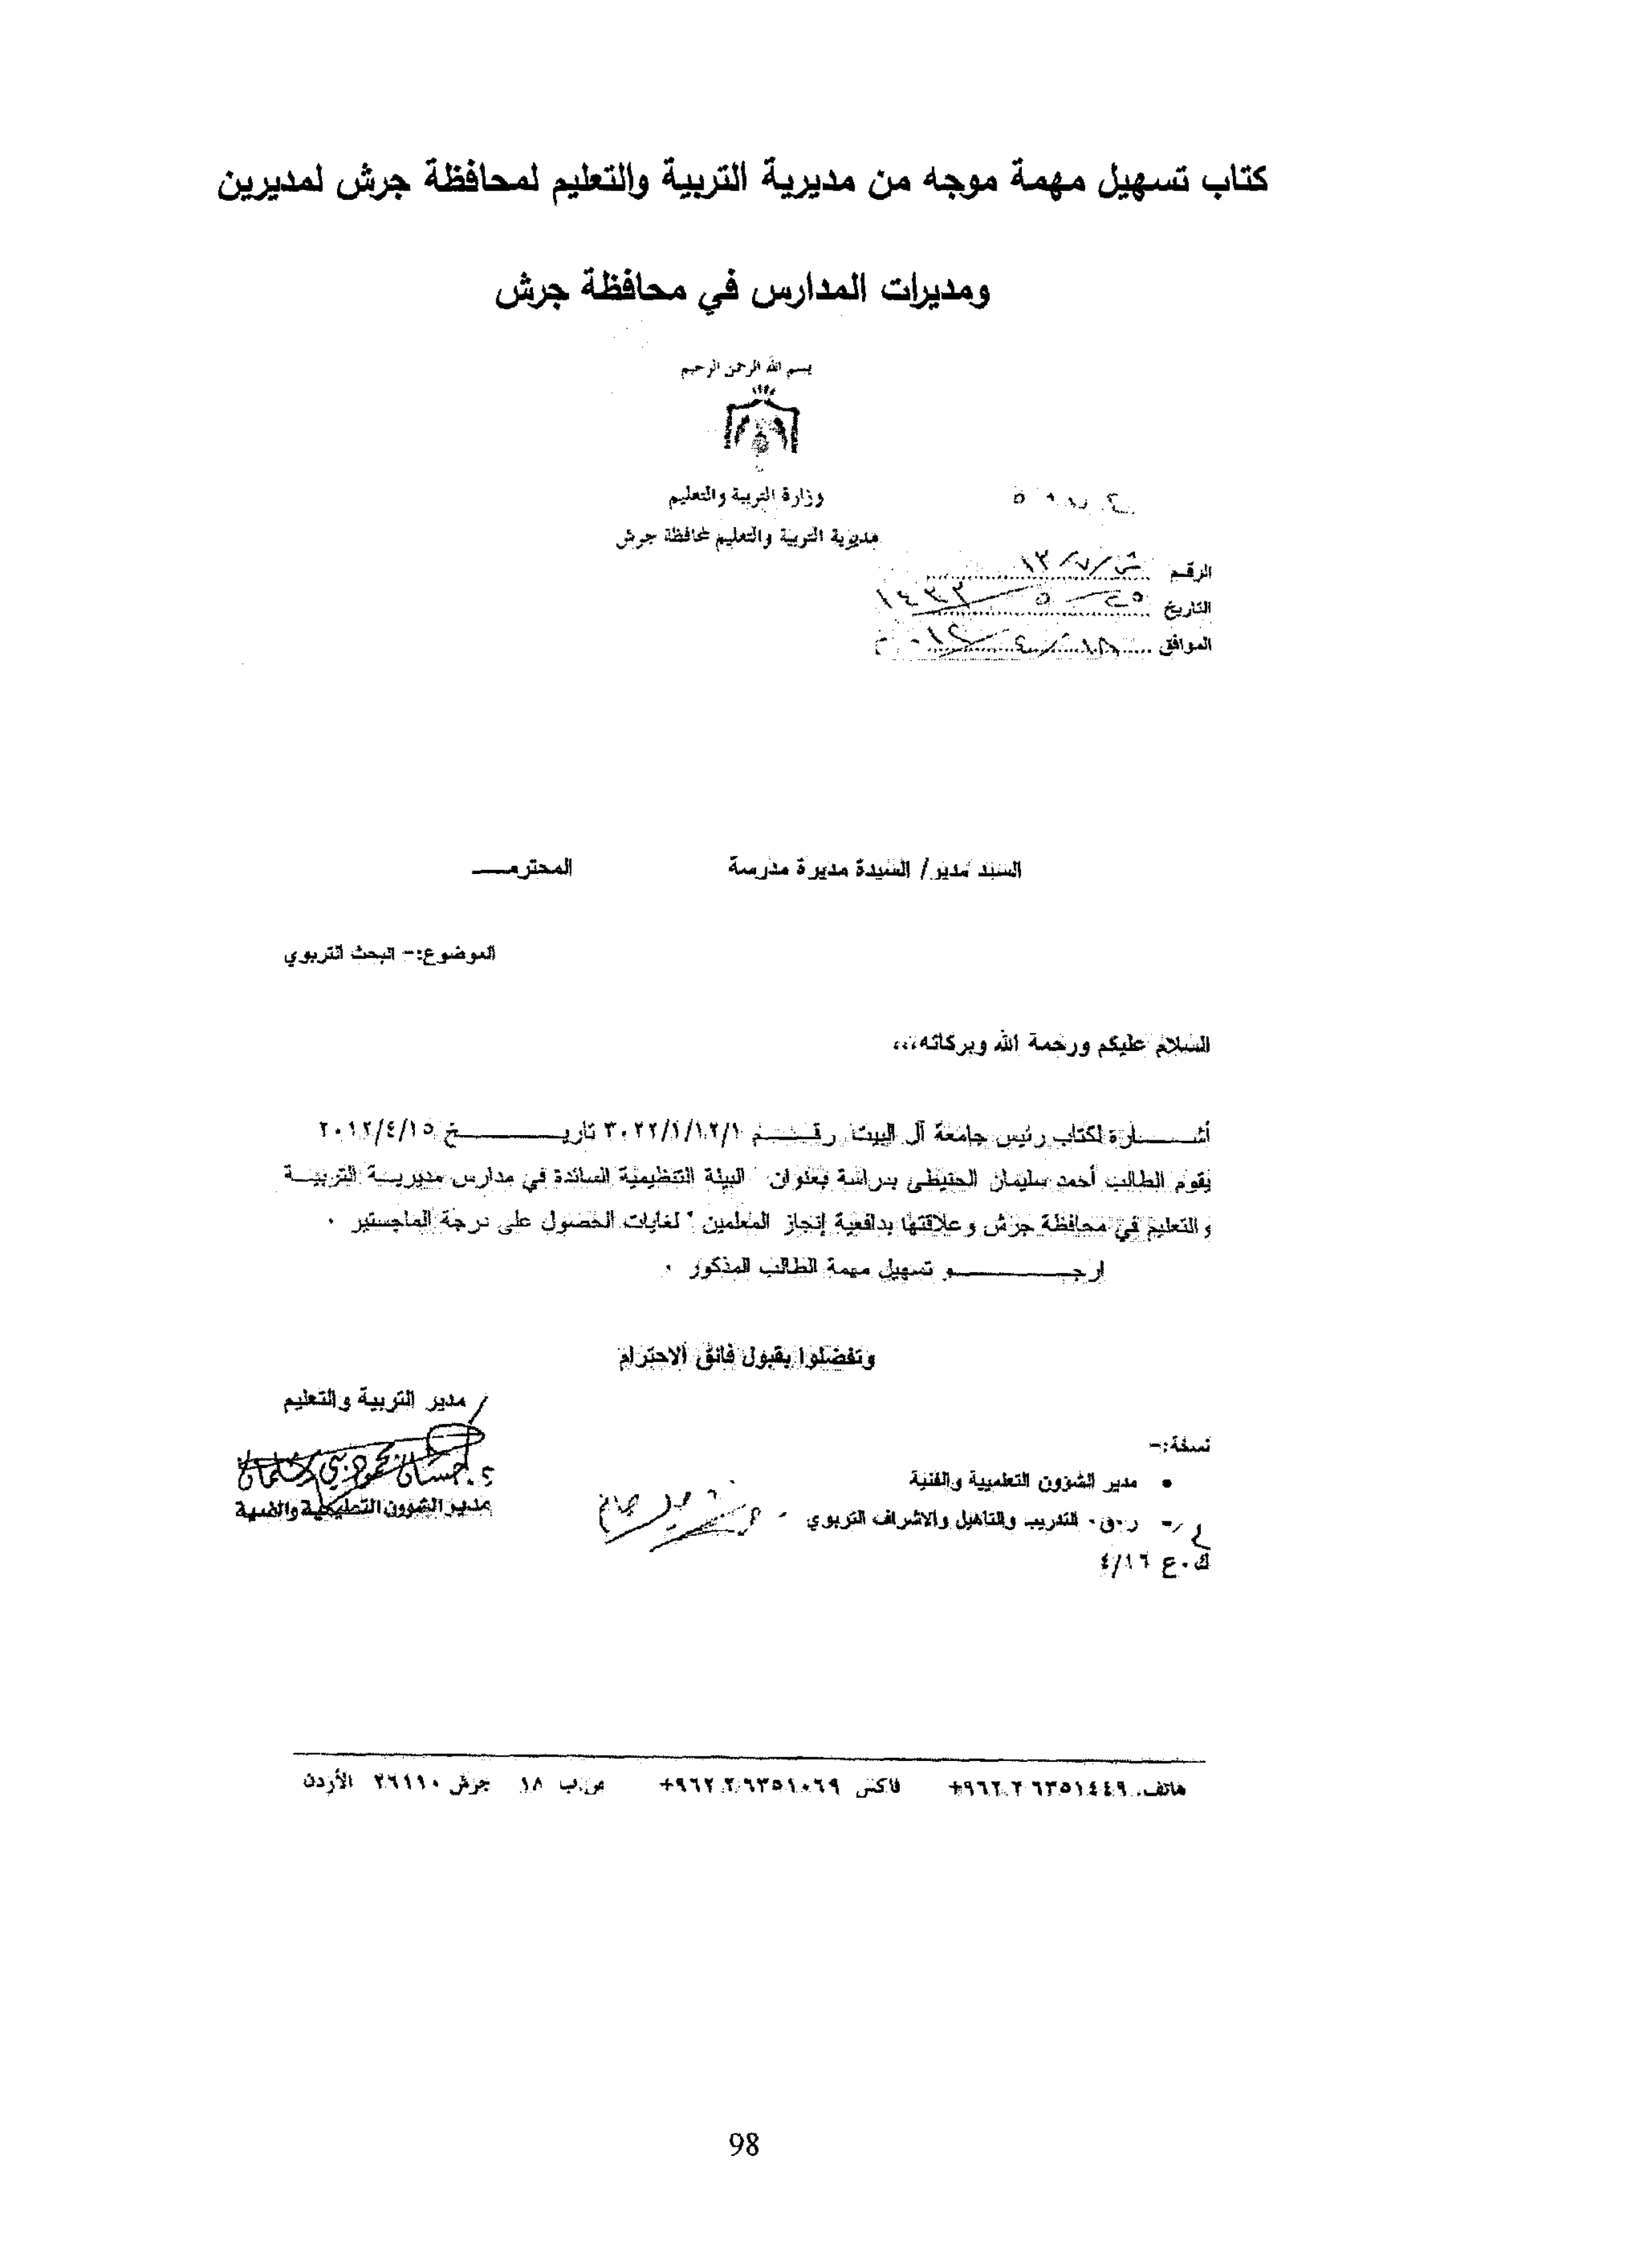 كتاب تسهيل مهمة موجه من مديرية التربية والتعليم لمحافظة جرش لمديرين
ومديرات المدارس في محافظة جرش
بسم الله الرحمن الرحيم
وزارة التربية والتعليم
مديرية التربية والتعليم لمحافظة جرش
الرقم
التاريخ ٢٥ / ٥ / ١٤٣٣
الموافق ١٨ / ٤ / ٢٠١٢ م
السيد مدير / السيدة مديرة مدرسة المحترمـــ
الموضوع:- البحث التربوي
السلام عليكم ورحمة الله وبركاته،،،
أشـــــارة لكتاب رئيس جامعة آل البيت رقـــم ٣٠٢٢/١/١٢/١ تاريـــــــخ ٢٠١٢/٤/١٥
يقوم الطالب أحمد سليمان الحنيطي بدراسة بعنوان " البيئة التنظيمية السائدة في مدارس مديريـــة التربيـــة
والتعليم في محافظة جرش وعلاقتها بدافعية إنجاز المعلمين " لغايات الحصول على درجة الماجستير .
ارجـــــــــو تسهيل مهمة الطالب المذكور .
وتفضلوا بقبول فائق الاحترام
/ مدير التربية والتعليم
مدير الشؤون التعليمية والفنية
نسخة:-
• مدير الشؤون التعلميية والفنية
- ر.ق. التدريب والتاهيل والاشراف التربوي
ك.ع ٤/١٦
هاتف. ٦٣٥١٤٤٩ ٢ ٩٦٢+ فاكس ٦٣٥١٠٦٩ ٢ ٩٦٢+ ص.ب ١٨ جرش ٢٦١١٠ الأردن
98